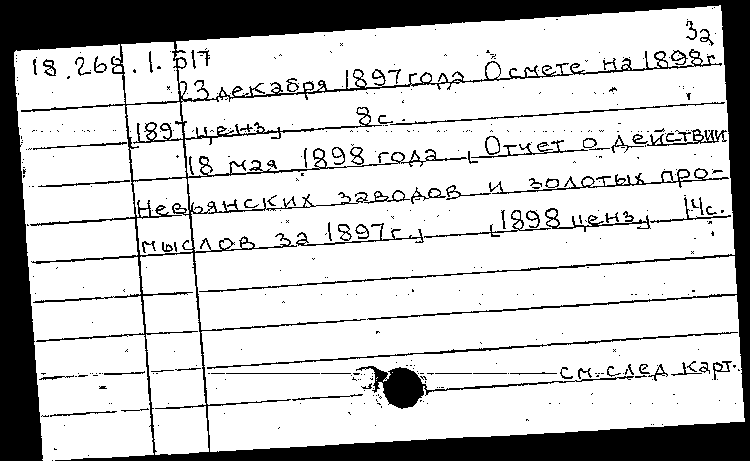 18.268.1.517 32
23 декабря 1897 года О смете на 1898 г.
[1897 ценз] 8 с.
18 мая 1898 года [Отчет о действии
Невьянских заводов и золотых про-
мыслов за 1897 г.] [1898 ценз] 14 с.
см. след карт.